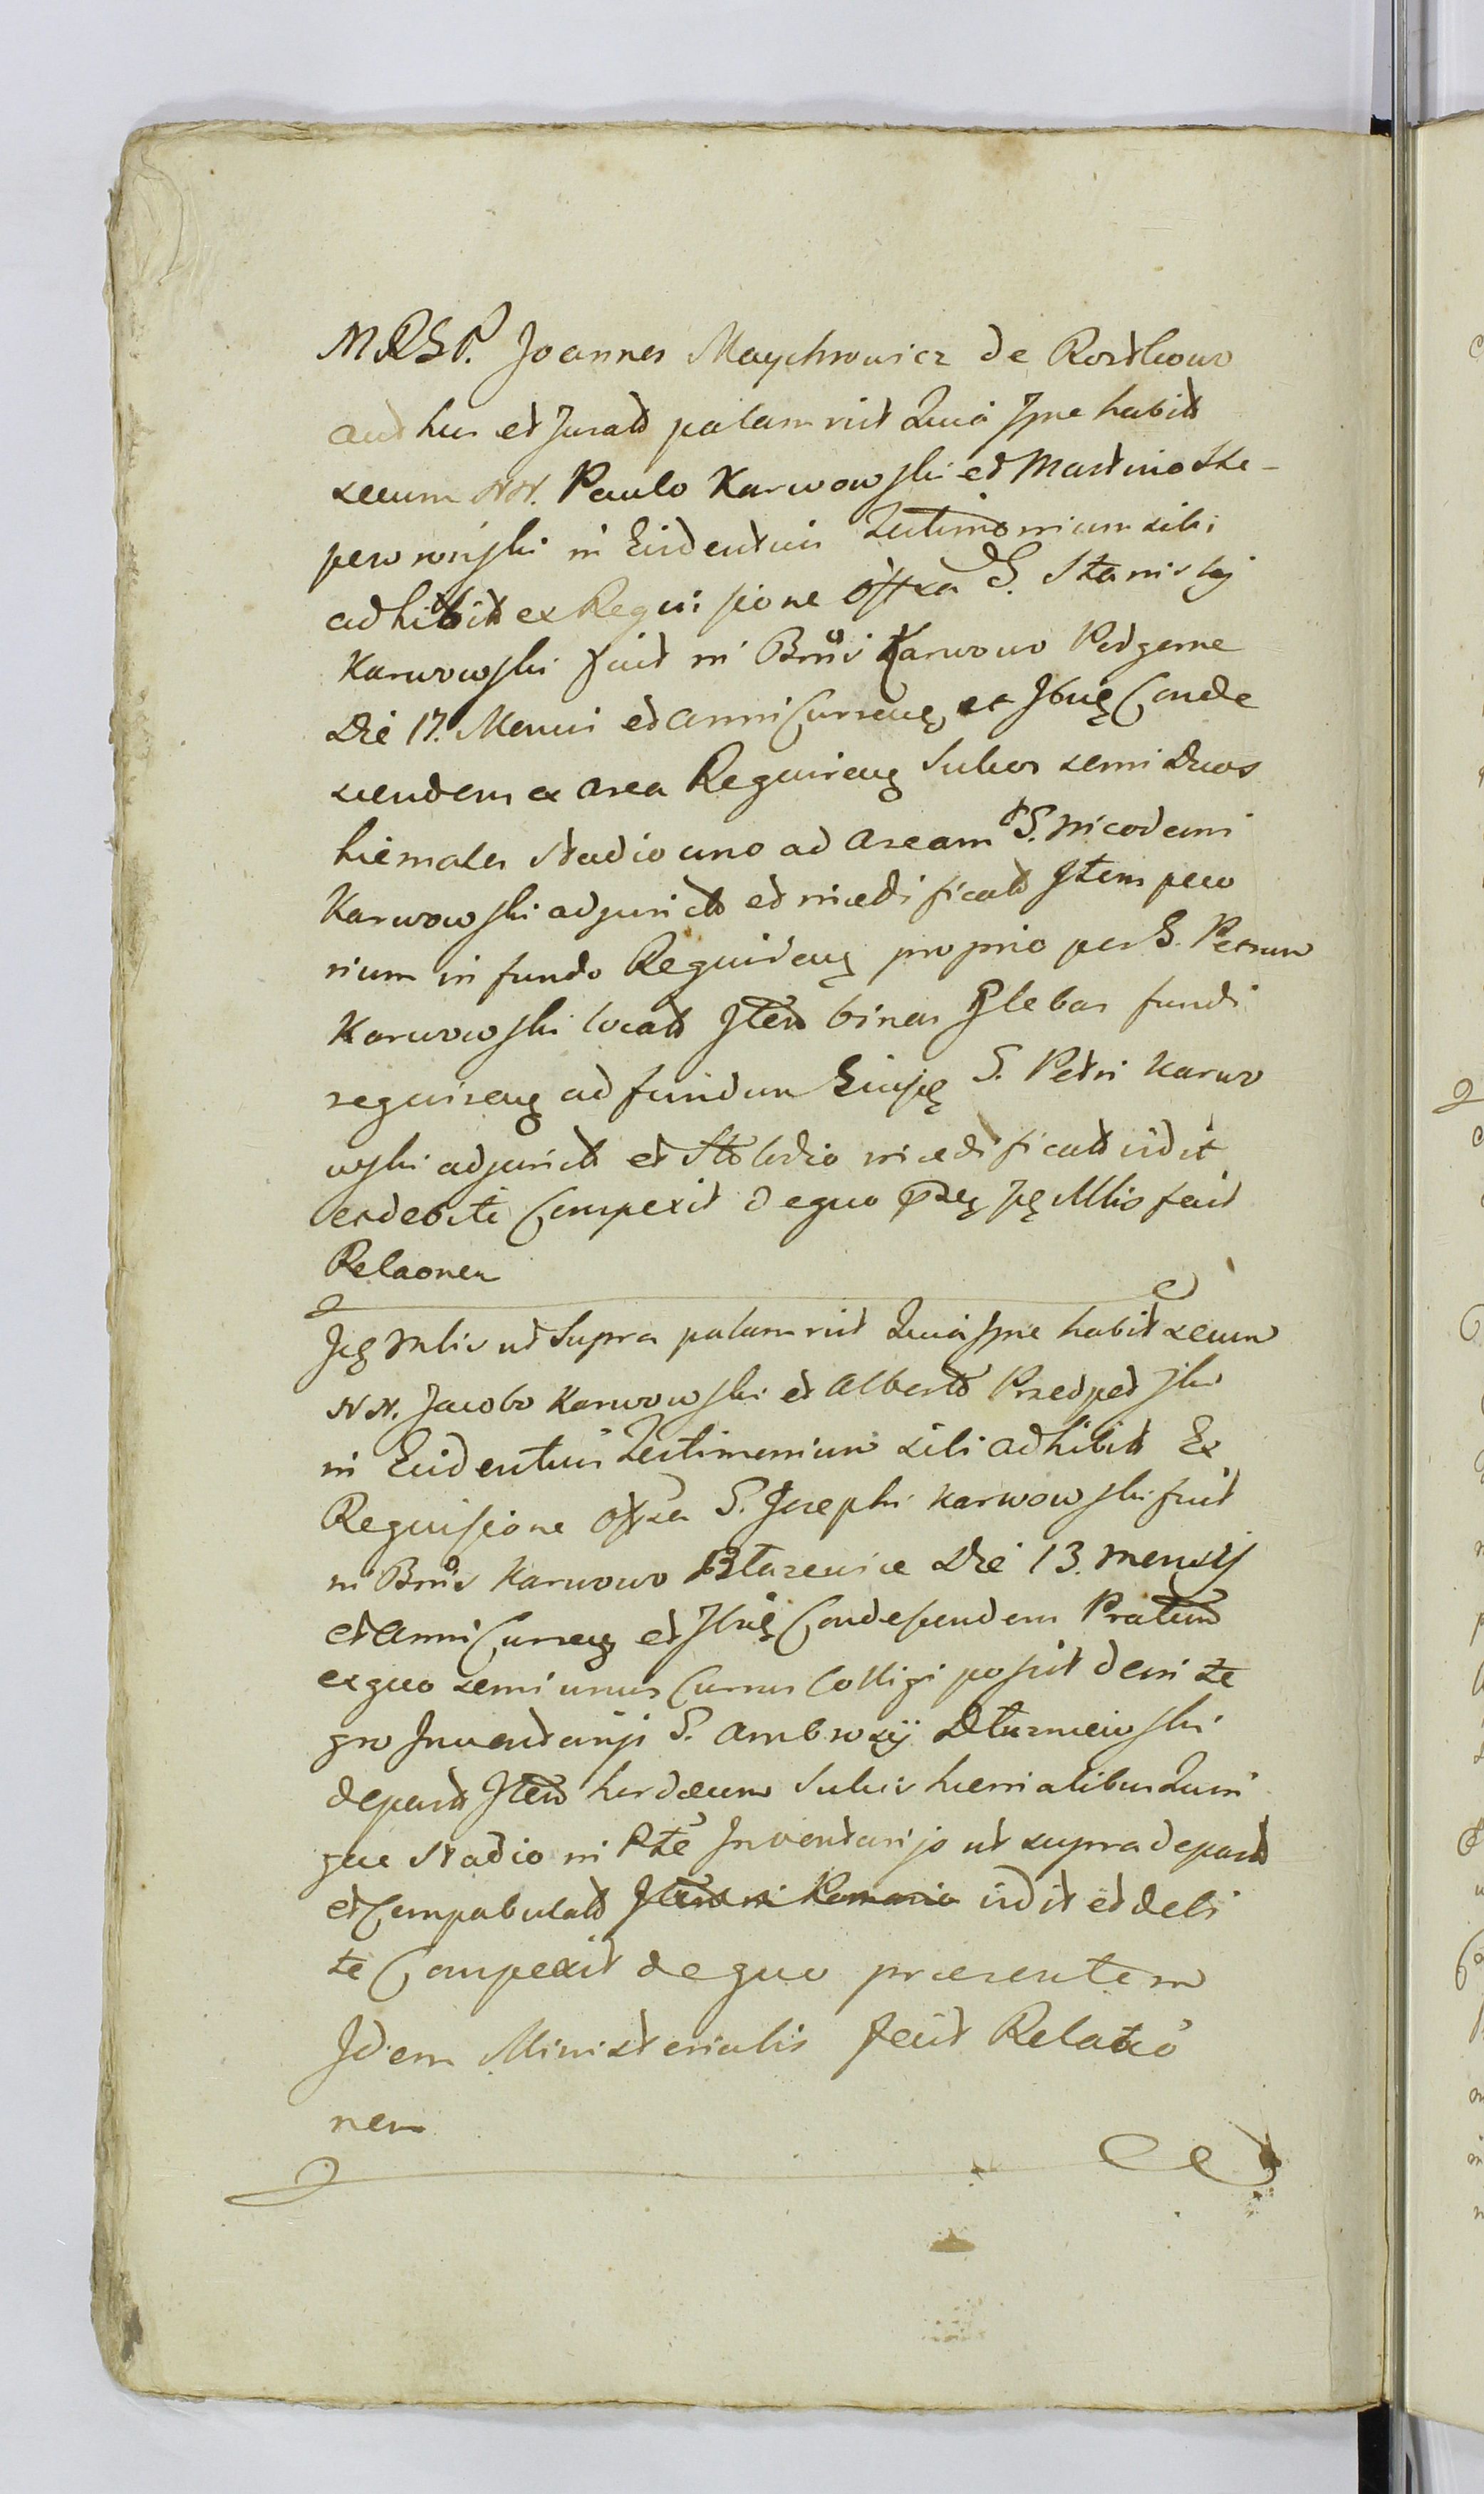 MRSP. Joannes Maychrowicz de Rostkowo
authus et Jurats palam rit Quia Ipse habits
secum NN. Paulo Karwowski et Martino Ske-
in Evidentius Testimonium sibi
adhibits ex Requisione offsa G. Stanislaj
Karwowski fuit in Bnis Karwowo Podgorne
Die 17. Mensis et anni Curreng et Ibnq Conde
scendem ex area Requireng Sulcos semi duos
hiemales Stadio uno ad aream G. Nicodemi
Karwowski adjuncts et inaedificats Item
rium in fundo Requireng proprio per G. Petrum
Karwowski locats Item binas Glebas fundi
requireng ad fundum Eiusq G. Petri Karwo
wski adjuncts et Stolidio inaedificats vidit
et debite Conspexit de quo Mlis fecit
Relaonem
Iq Mlis ut supra palam rit Quia Ipse habits secum
NN. Jacobo Karwowski et Alberto Przedpelski
in Evidentius Testimonium sibi adhibits Ex
Requisione offsa G. Josephi Karwowski fuit
in Bnis Karwowo Błazewice Die 13. Mensij
et Anni Curreng et Ibnq Condescendem Pratum
ex quo semi unus Currus Colligi possit de inte
gro Inventarij G. Ambrosij Dłuzniewski
depasts Item hordaeum Sulcis hiemalibus Quin
que Stadio in Rte Inventarijo ut supra depasts
et Compabulats Item in Pomario vidit et debi
te Conspexit de quo praesentem
Idem Ministerialis fecit Relatio
nem